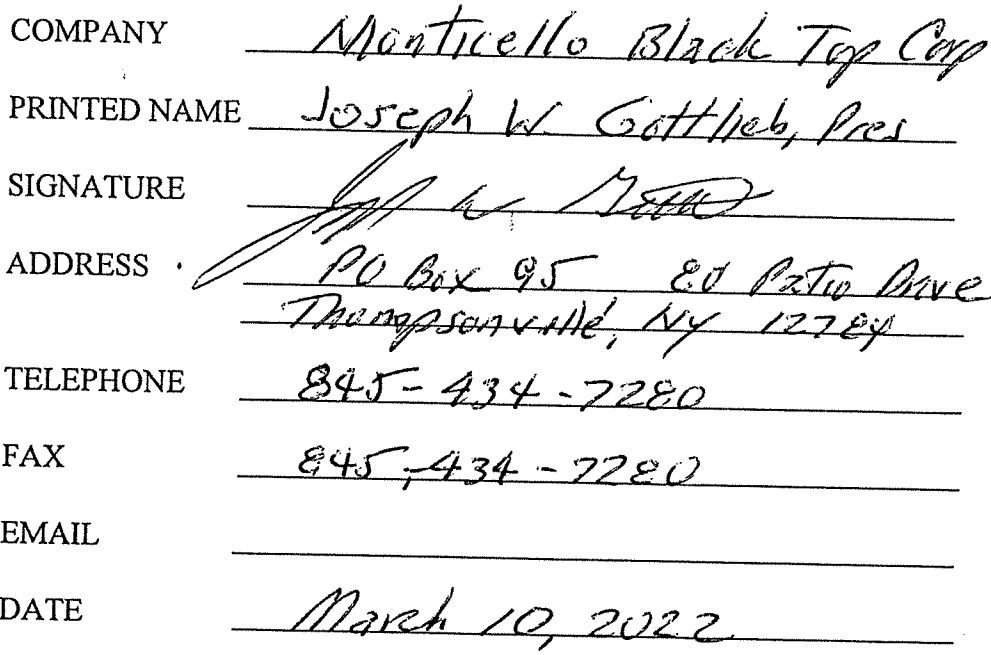 COMPANY Monticello Black Top Corp
PRINTED NAME Joseph W. Gottlieb, Pres
SIGNATURE
ADDRESS PO Box 95 80 Patio Drive
Thompsonville, NY 12784
TELEPHONE 845-434-7280
FAX 845-434-7280
EMAIL
DATE March 10, 2022